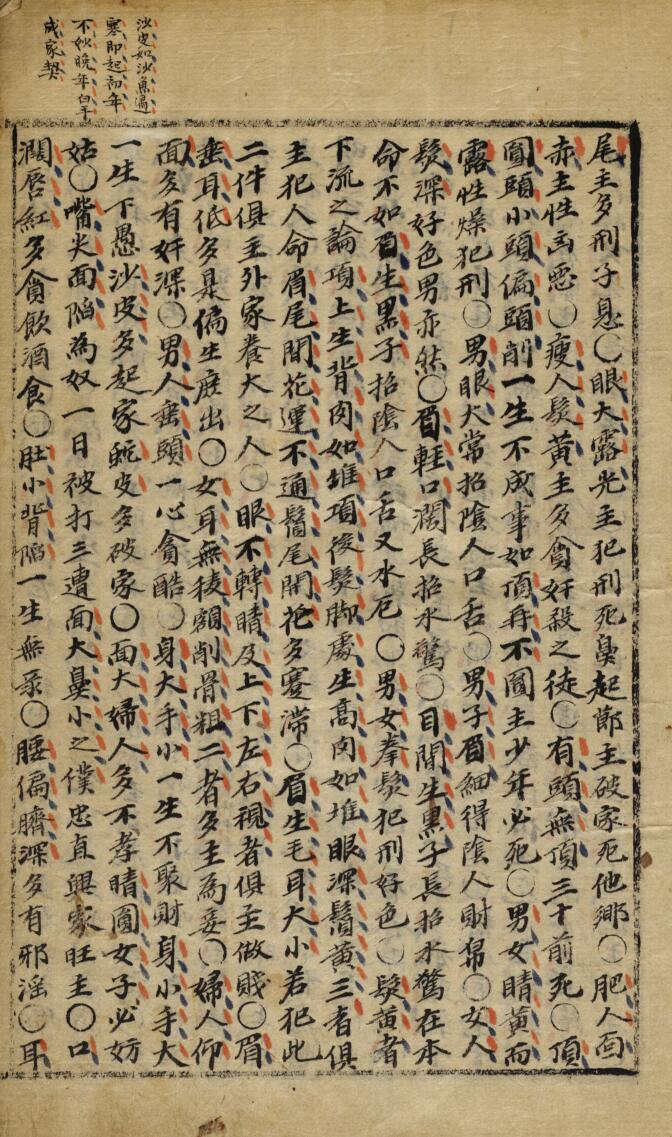 沙皮如沙魚過
寒即起初年
不妙晚年白手
成家契
尾主多刑子息〇眼大露光主犯刑死鼻起節主破家死他鄉〇肥人面
赤主性凶惡〇瘦人髮黃主多貪奸殺之徒〇有頭無頂三十前死〇頂
圓頭小頭偏頭削一生不成事如頂再不圓主少年必死〇男女睛黃而
露性燥犯刑〇男眼大常招陰人口舌〇男子眉細得陰人財帛〇女人
髮深好色男亦然〇眉輕口濶長招水驚〇目間生黑子長招水驚在本
命不如眉生黑子招陰人口舌又水厄〇男女拳髮犯刑好色〇髮黃者
下流之論項上生背肉如堆項後髮脚處生高肉如堆眼深鬚黃三者俱
主犯人命眉尾開花運不通鬚尾開花多蹇滯〇眉生毛耳大小若犯此
二件俱主外家養大之人〇眼不轉睛及上下左右視者俱主做賤〇眉
垂耳低多是偏生庶出〇女耳無稜顴削骨粗二者多主為妾〇婦人仰
面多有奸深〇男人垂頭一心貪酷〇身大手小一生不聚財身小手大
一生下愚沙皮多起家蛇皮多破家〇面大婦人多不孝睛圓女子必妨
姑〇嘴尖面陷為奴一日被打三遭面大鼻小之僕忠直興家旺主〇口
濶唇紅多貪飲酒食〇肚小背陷一生無录〇腰偏臍深多有邪淫〇耳